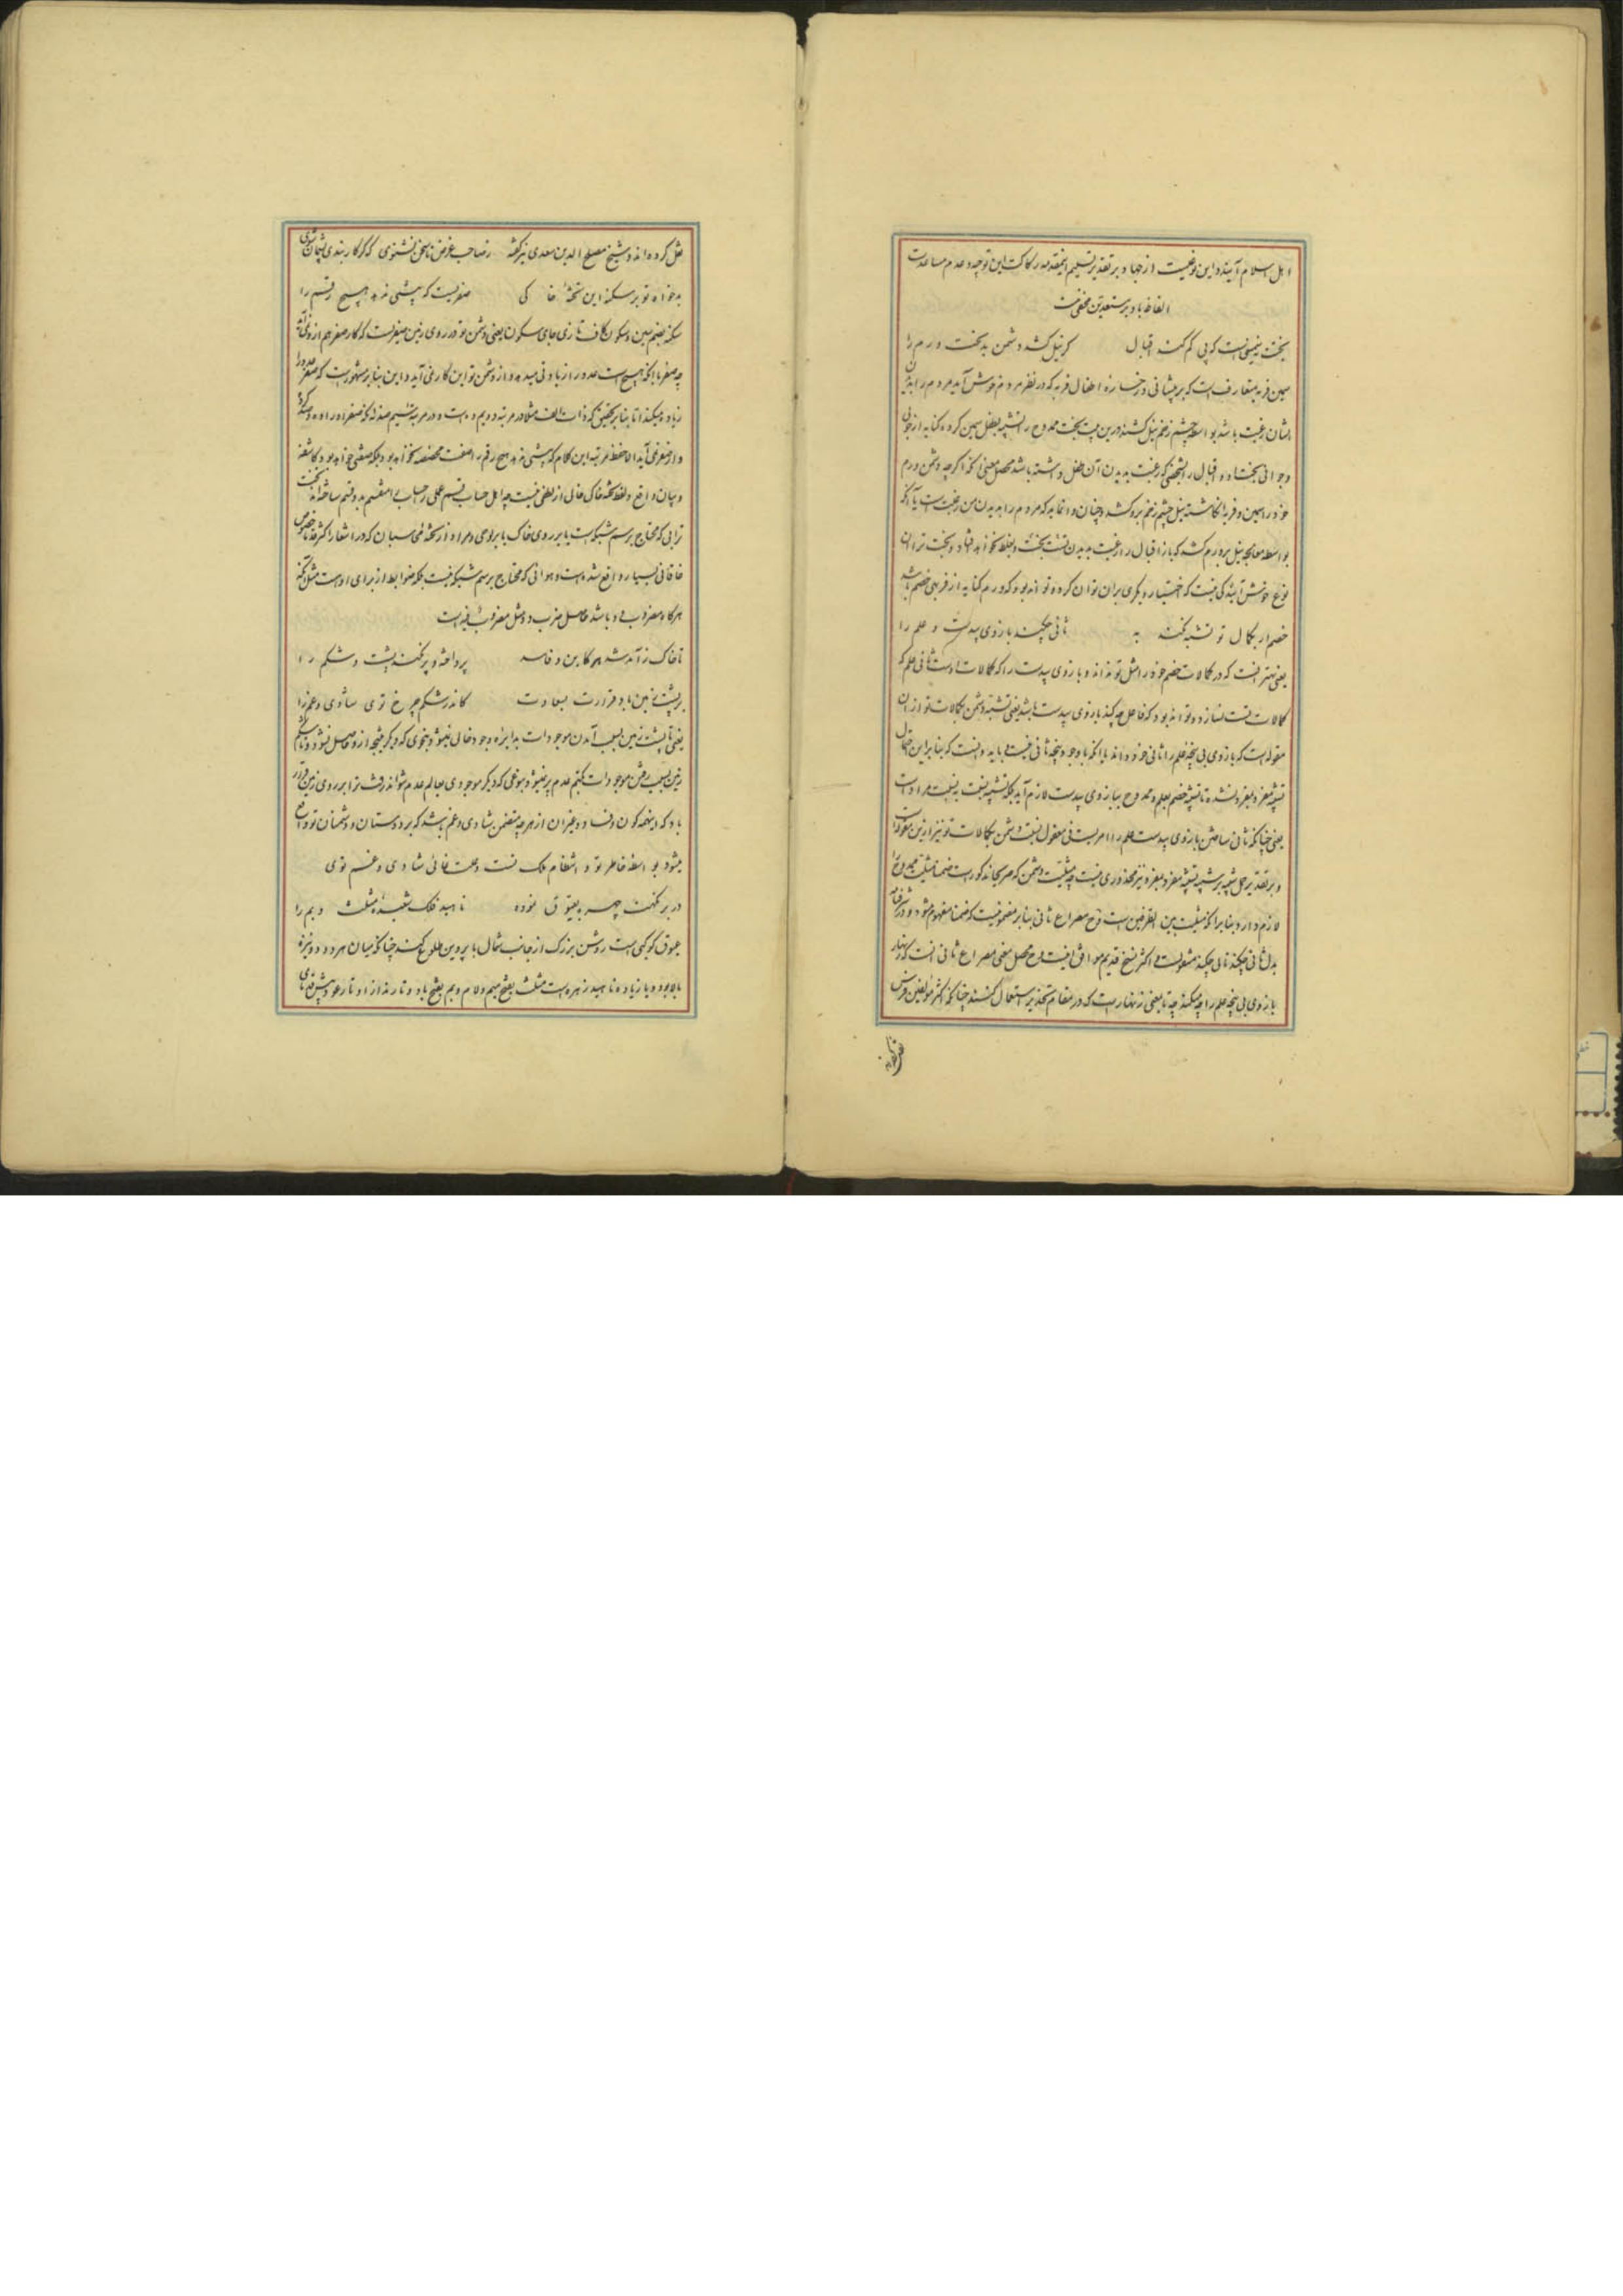 اهل اسلام آیند و این نوعیست از جهاد و بر تقدیر تسلیم این مقدمه رکاکت این توجیه و عدم مساعدت
الفاظ با او بر مستعدین مخفی نیست
بخت سمنیست که پی کم کند اقبال گر نیل کشد دشمن بدبخت ورم را
سمین فربه متعارفست که بر پیشانی و رخساره اطفال فربه که در نظر مردم خوش آید مردم را بدیدن
ایشان رغبت باشد بواسطه چشم زخم نیل کشند درین بیت بخت ممدوح را تشبیه بطفل سمین کرده کنایه از خوبی
و جوانی بخت او و اقبال را بشخصی که رغبت بدیدن آن طفل داشته باشد محصل معنی آنکه اگرچه دشمن ورم
خود را سمین و فربه انگاشته نیل چشم زخم برو کشد و چنان وانماید که مردم را بدیدن من رغبت است یا آنکه
بواسطه معالجه نیل برورم کشد که باز اقبال را رغبت بدیدن تست بخت و بغلط نخواهد افتاد و بخت ترا این
نوع خوش آیندگی نیست که اختیار دیگری بران توان کرد و تواند بود که ورم کنایه از فربهی خصم باشد
خصم ار بکمال تو تشبه نکند به ثانی چکند بازوی بیدست و علم را
یعنی بهتر آنست که در کمالات خصم خود را مثل تو نداند و بازوی بیدست را که کمالات اوست ثانی علم که
کمالات تست نسازد و تواند بود که فاعل چه کند بازوی بیدست باشد یعنی تشبه دشمن بکمالات تو ازان
مقوله است که بازوی بی پنجه علم را ثانی خود داند با آنکه با وجود پنجه ثانی نیست و باید دانست که بنابراین احتمال
تشبیه مفرد بمفرد نشده تا تشبیه خصم بعلم و ممدوح ببازوی بیدست لازم آید بلکه تشبیه نسبت به نسبت مراد است
یعنی چنانکه ثانی ساختن بازوی بیدست علم را امریست نی معقول نسبت دشمن بکمالات تو نیز ازین مقوله است
و بر تقدیر حمل تشبیه بر تشبیه مفرد بمفرد نیز محذوری نیست چه مثلیت دشمن که صریحا مذکور است ضمنا مثلیت ممدوح را
لازم دارد بنابر آنکه مثلیت بین الطرفین است و ح مصراع ثانی بنابر مضمونیست که ضمنا مفهوم میشود و در شرفنامه
بدل ثانی چکند تا لی چکند مشعریست و اکثر نسخ قدیم موافق آنست و ح محصل معنی مصراع ثانی آنست که زنهار
بازوی بی پنجه علم را چه میکند چه تا بمعنی زنهار است که در مقام تحذیر استعمال کنند چنانکه اکثر مؤلفین فرس
نقل کرده‌اند
نقل کرده‌اند و شیخ مصلح الدین سعدی نیز گفته ز صاحب غرض تا سخن نشنوی که گر کار بندی پشیمان شوی
بدخواه تو بر سکنه این تختهٔ خاکی صفریست که بیشی ندهد هیچ رقم را
سکنه بضم سین و سکون کاف تازی جای سکون یعنی دشمن تو در روی زمین صفریست که کار صفر هم ازو نمی‌آید
چه صفر با آنکه هیچ است عدد را زیادتی میدهد و از دشمن تو این کار نمی‌آید و این بنابر مشهور است که صفر عدد را
زیاده میکند اما بنابر تحقیق که ذات الف مثلا در مرتبه دویم ده است و در مرتبه سیم صد نه آنکه صفر او را ده و صد کرده
و از صفر نمی‌آید الا حفظ مرتبه این کلام که بیشی ندهد هیچ رقم را صفت مخصصه نخواهد بود بلکه صفتی خواهد بود کاشفه
و بیان واقع و لفظ تخته خاک خالی از لطفی نیست چه اهل حساب قسم عملی را حساب منقسم بدو قسم ساخته‌اند تخت
ترابی که محتاج برسم شبکه است یا بر روی خاک یا بر لوحی و مراد از تخته نمی سبان که در اشعار اکثر قدما خصوص
خاقانی بسیار واقع شده است و هوائی که محتاج برسم شبکه نیست بلکه ضوابط از برای اوست مثل آنکه
هر گاه مضروب فیه دو باشد حاصل ضرب دو مثل مضروب فیه است
تا خاک ز آمد شد هر کاین و فاسد پرداخته و پر نکند پشت و شکم را
بر پشت زمین باد قرارت بسعادت کاندر شکم چرخ توی شادی و غم را
یعنی تا پشت زمین بسبب آمدن موجودات بدایرهٔ وجود خالی نمیشود بنحوی که دیگر نتیجه ازو حاصل نشود و تا شکم
زمین بسبب رفتن موجودات بکتم عدم پر نمیشود بنوعی که دیگر موجودی بعالم عدم نتواند رفت ترا بر روی زمین قرار
باد که اینهمه کون و فساد و غیر آن از هر چه متضمن شادی و غم باشد که بر دوستان و دشمنان تو واقع
میشود بواسطه خاطر تو و انتظام ملک تست و علت غائی شادی و غم توی
در بر نکهت چهره بعیوق نموده ناهید فلک شعبدهٔ مثلث و بم را
عیوق کوکبی است روشن بزرگ از جانب شمال با پروین طلوع کند چنانکه میان هر دو دو نیزه
بالا بود و یا زیاده ناهید زهره است مثلث بفتح میم و لام و بم بفتح با دو تارند از اوتار عود و پیش ازین